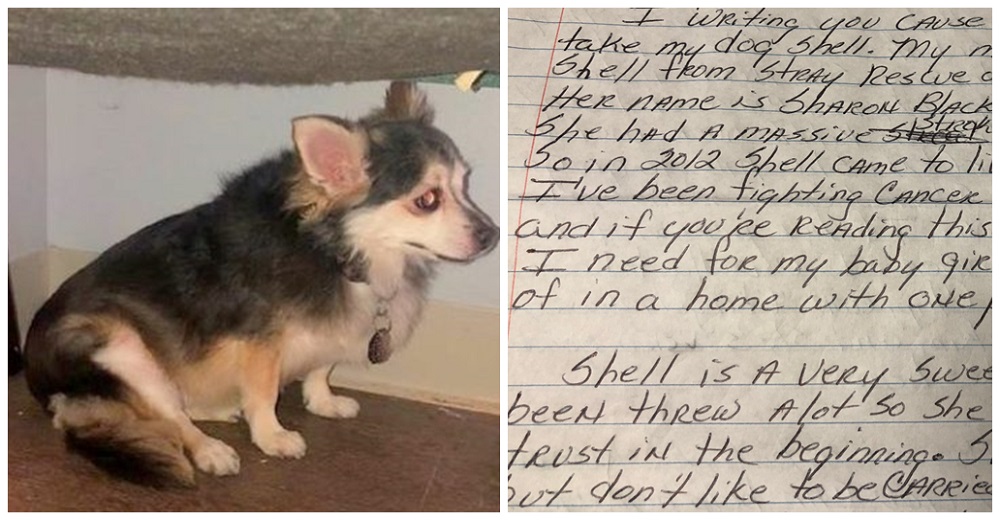 I writing you cause
take my dog Shell. My m
Shell from Stray Rescue o
Her name is Sharon Black
She had A massive Stroke
So in 2012 Shell came to li
I've been fighting Cancer
and if you're Reading this
I need for my baby girl
of in a home with one p
Shell is A very Swee
been threw Alot So She
trust in the beginning. S
but don't like to be Carried